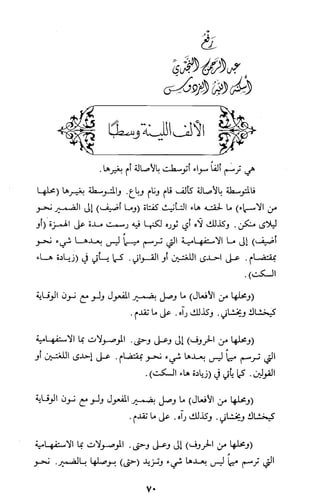 رفع
عبد الرحمن النجدي
أسكنه الله الفردوس
الألف اللينة وسطاً
هي ترسم ألفاً سواء أتوسطت بالأصالة أم بغيرها.
فالمتوسطة بالأصالة كألف قام ونام وباع. والمتوسطة بغيرها (محلها
من الأسماء) ما لحقته هاء التأنيث كفتاة (وما أضيف) إلى الضمير نحو
ليلاي منكن. وكذلك لآه أي ثوره لكنها فيه رسمت مدة على الهمزة (أو
أضيف) إلى ما الاستفهامية التي ترسم ميماً ليس بعدها شيء نحو
بمقتضام. على احدى اللغتين أو القولين. كما يأتي في (زيادة هاء
السكت).
(ومحلها من الأفعال) ما وصل بضمير المفعول ولو مع نون الوقاية
كيخشاك ويخشاني. وكذلك رآه. على ما تقدم.
(ومحلها من الحروف) إلى وعلى وحتى. الموصولات بما الاستفهامية
التي ترسم ميماً ليس بعدها شيء نحو بمقتضام. على إحدى اللغتين أو
القولين. كما يأتي في (زيادة هاء السكت).
(ومحلها من الأفعال) ما وصل بضمير المفعول ولو مع نون الوقاية
كيخشاك ويخشاني. وكذلك رآه. على ما تقدم.
(ومحلها من الحروف) إلى وعلى وحتى. الموصولات بما الاستفهامية
التي ترسم ميماً ليس بعدها شيء وتزيد (حتى) بوصلها بالضمير. نحو
٧٠